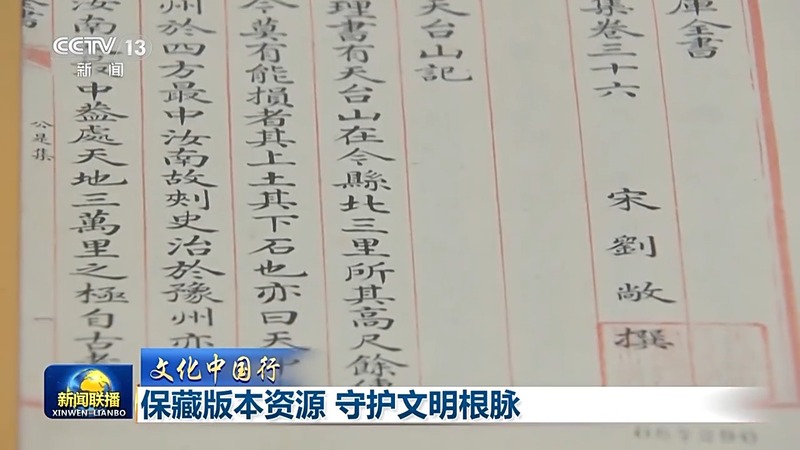 CCTV 13
新闻
庫全書
集卷三十六 宋劉敞撰
天台山記
理書有天台山在今縣北三里所其高尺餘
今莫有能損者其上土其下石也亦曰天
州於四方最中汝南故刾史治於豫州亦
汝南中葢處天地三萬里之極自古
公是集
一
文化中国行
新闻联播
XINWEN-LIANBO
保藏版本资源 守护文明根脉